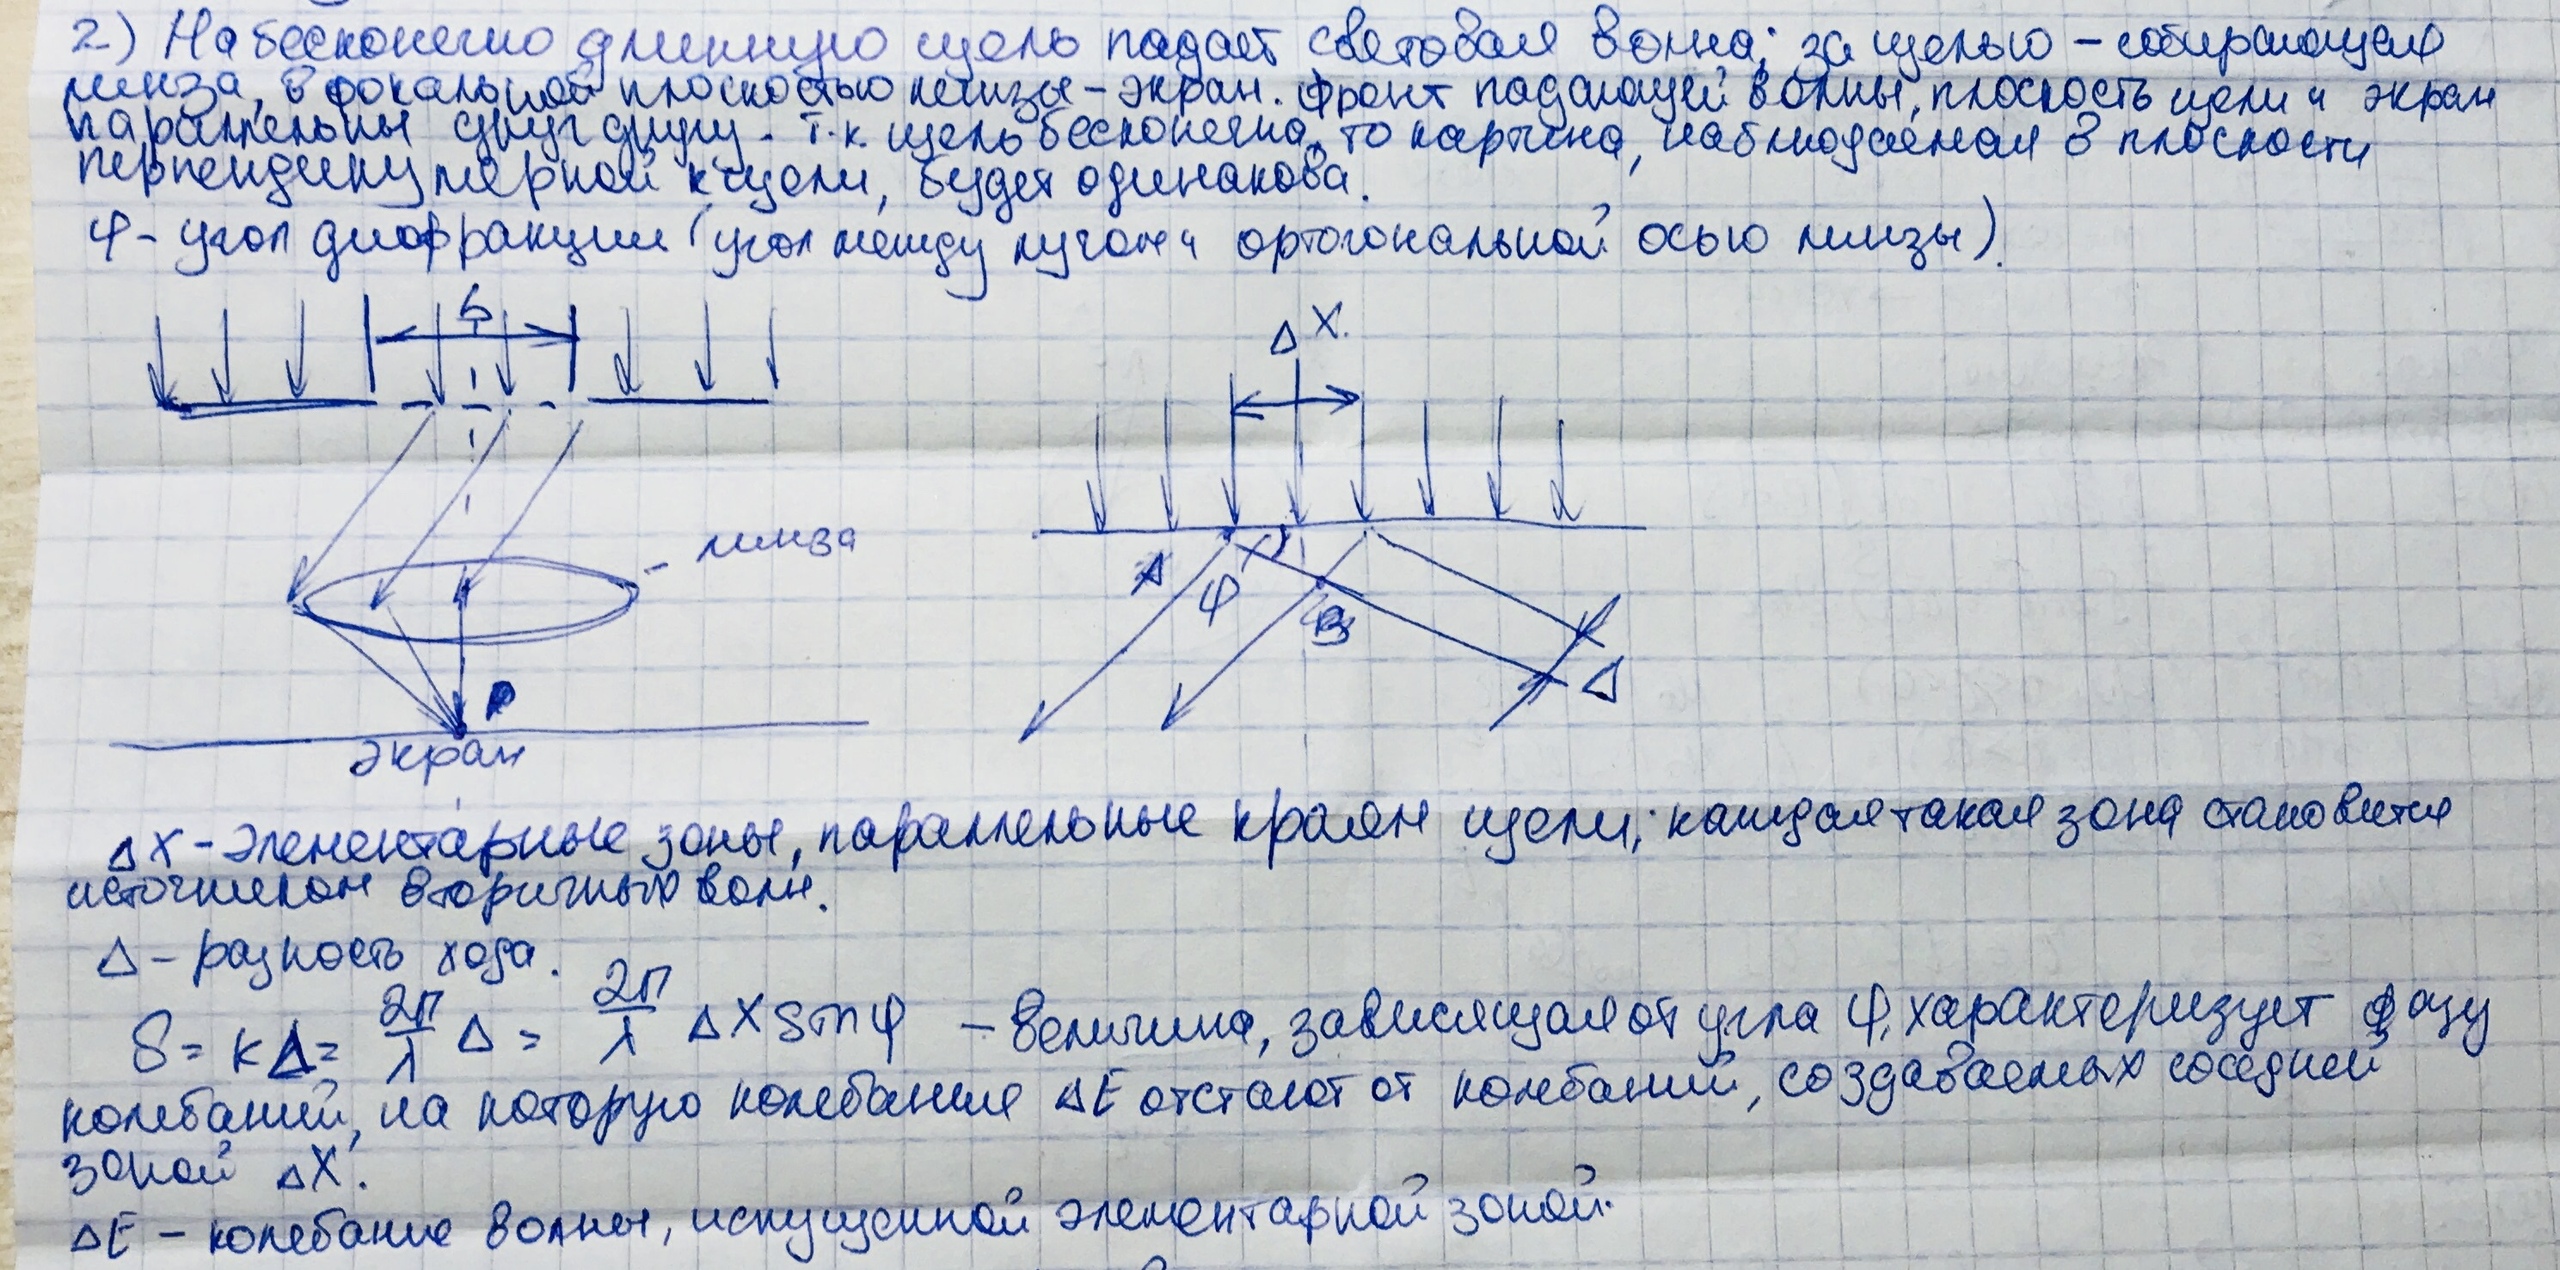 2) На бесконечно длинную щель падает световая волна; за щелью – собирающая
линза, в фокальной плоскостью линзы – экран. Фронт падающей волны, плоскость щели и экран
параллельны друг другу. Т.к. щель бесконечна, то картина, наблюдаемая в плоскости
перпендикулярной к щели, будет одинакова.
φ – угол дифракции (угол между лучом и ортогональной осью линзы).
b
Δ X.
линза
A
φ
B
Δ
P
экран
Δ X – элементарные зоны, параллельные краям щели; каждая такая зона становится
источником вторичных волн.
Δ – разность хода.
δ = kΔ = 2π/λ Δ = 2π/λ ΔX sin φ – величина, зависящая от угла φ, характеризует фазу
колебаний, на которую колебания ΔE отстают от колебаний, создаваемых соседней
зоной ΔX.
ΔE – колебание волны, испущенной элементарной зоной.